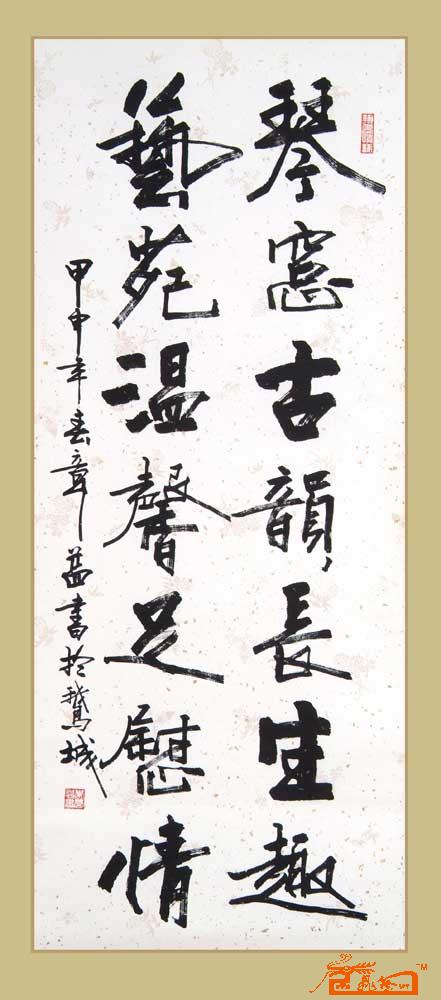 琴窓古韻長生趣
藝苑温馨足慰情
甲申年春章益書於鵞城
TM